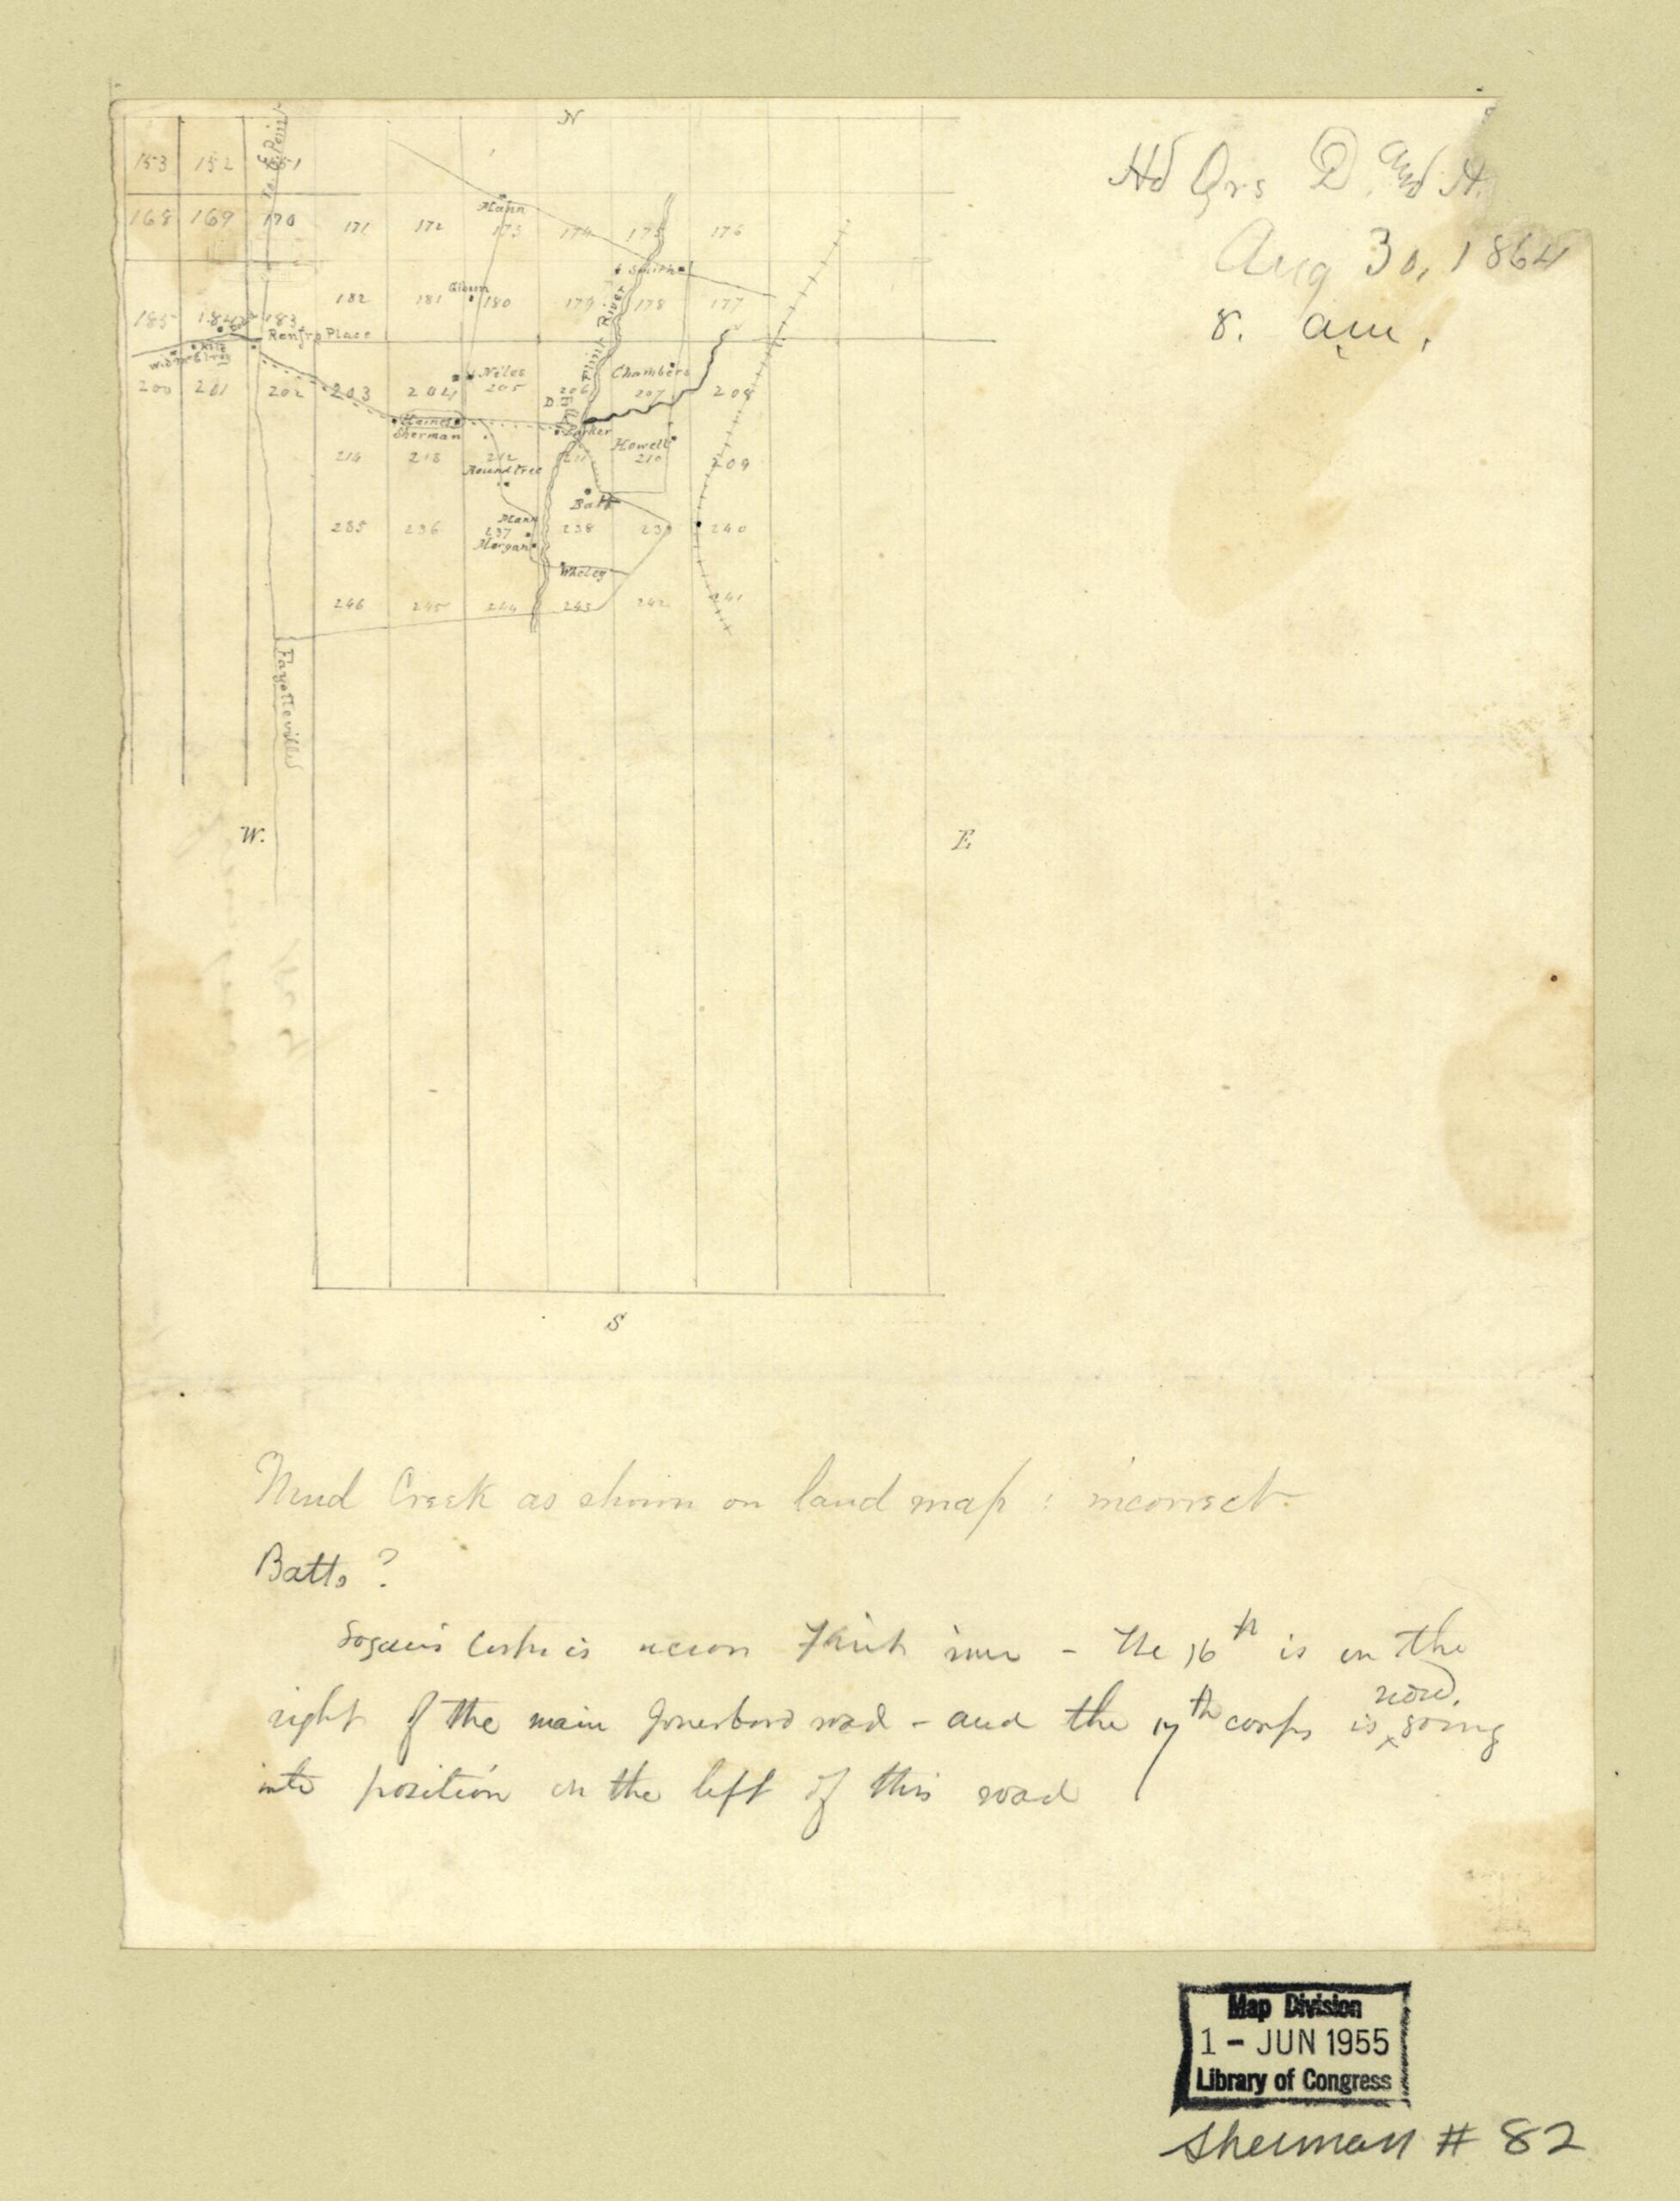 N
Hd Qrs D. and A.
Aug 30, 1864
8. am.
153 152 151
To E. Point
168 169 170 171 172 173 174 175 176
Mann
Smith
185 184 183 182 181 180 179 178 177
Flint River
Renfro Place
Niles
Chambers
200 201 202 203 204 205 206 207 208
Haines
Sherman
Parker
Howell
214 213 212 211 210 209
Roundtree
Batt
Mann
235 236 237 238 239 240
Morgan
Whaley
246 245 244 243 242 241
Fayetteville
W.
E
S
Mud Creek as shown on land map : incorrect.
Batts ?
Logan's Corps is across Flint river - the 16th is on the
right of the main Jonesboro road - and the 17th corps is now going
into position on the left of this road
Map Division
1 - JUN 1955
Library of Congress
Sherman # 82